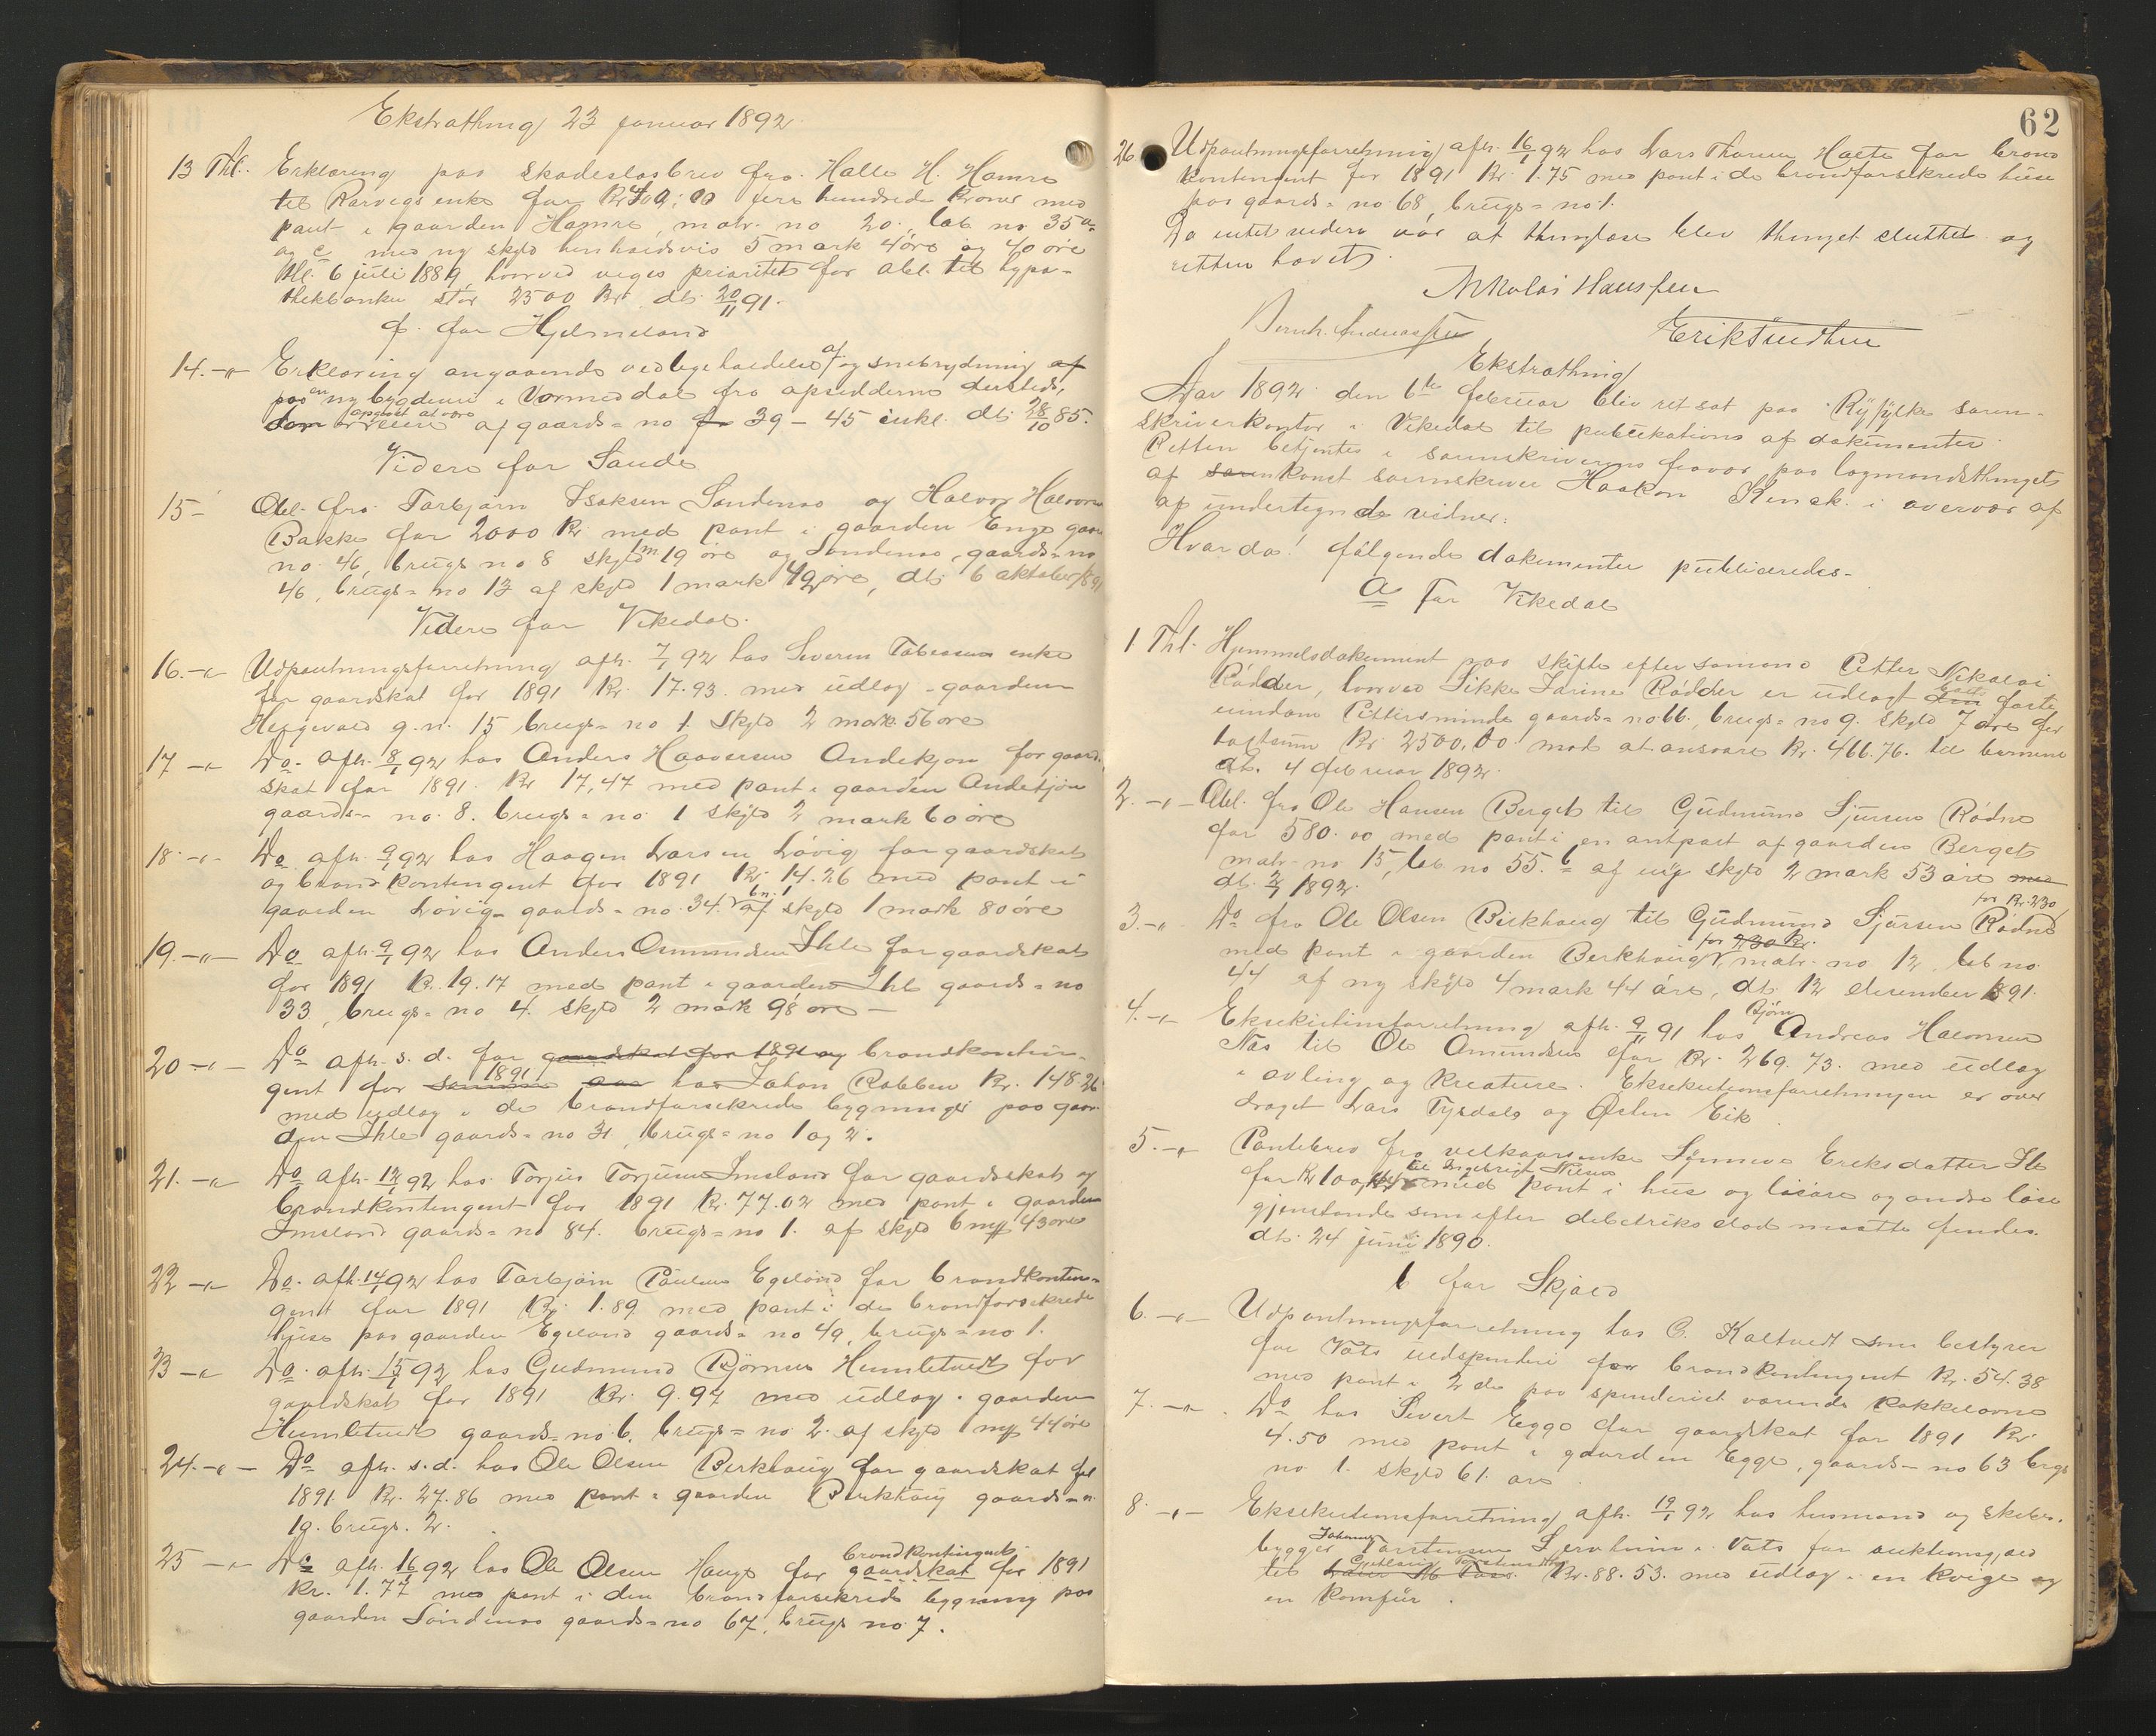 Ekstrathing 23 januar 1892.
13 Thl. Erklæring paa skadesløsbrev fra Halle H. Hamre
til Rarvegs enke for Kr 400,00 fire hundrede Kroner med
pant i gaarden Hamre, matr. no 20, løb. no 35 a
og c med ny skyld henholdsvis 5 mark 4 øre og 40 øre
thl. 6 juli 1889, hvorved viges prioritet for obl. til hypo-
thekbanken stor 2500 Kr. dt. 20/11 91.
f. for Hjelmeland
14. -"- Erklæring angaaende vedligeholdelse af og snebrydning af
paa en ny bygdevei i Vormedal fra opsidderne dersteds,
som opgives at være eiere af gaards-no fr 39 - 45 inkl. dt. 28/10 85.
Videre for Saude
15 - Obl. fra Torbjørn Isaksen Søndenaa og Halvor Halvorsen
Bakke for 2000 Kr. med pant i gaarden Enge gaards
no. 46, brugs no 8 skyld m. 19 øre og Søndenaa, gaards-no
46, brugs-no 13 af skyld 1 mark 42 øre, dt. 6 oktober 1891
Videre for Vikedal.
16. -"- Udpantningsforretning afh. 7/1 92 hos Severin Tobiassen enke
for gaardskat for 1891 Kr. 17.93. med udlæg i gaarden
g.n. 15 brugs-no 1. Skyld 2 mark 56 øre
17 -"- Do. afh. 8/1 92 hos Anders Haaversen Øndekjøn for gaard-
skat for 1891. Kr 17,47 med pant i gaarden Andekjøn
gaards- no. 8. brugs-no 1 skyld 2 mark 60 øre
18. -"- Do afh. 9/1 92 hos Haagen Larsen Løvig for gaardskat
og brandkontingent for 1891 Kr. 14.26 med pant i
gaarden Løvig- gaards-no. 34. bn. 1 af skyld 1 mark 80 øre
19. -"- Do afh. 9/1 92 hos Anders Osmundsen Ihle for gaardskat
for 1891 Kr. 19.17 med pant i gaarden Ihle gaards-no
33, brugs-no 4. skyld 2 mark 98 øre -
20 -"- Do afh. s.d. for gaardskat for 1891 og brandkontin-
gent for samme 1891 hos Johan Robben Kr. 148 26
med udlæg i de brandforsikrede bygninger paa gaar-
den Ihle gaards-no 31, brugs-no 1 og 2.
21. -"- Do afh. 12/1 92 hos Torjus Torjusen Imsland for gaardsskat og
brandkontingent for 1891 Kr. 77.02 med pant i gaarden
Imsland gaards-no 84. brugs-no 1. af skyld 6 mk 43 øre
22 -"- Do. afh. 14/1 92 hos Torbjørn Paulsen Egeland for brandkontin-
gent for 1891 Kr. 1.89 med pant i de brandforsikrede
huse paa gaarden Egeland gaards-no 49, brugs-no 1.
23 -"- Do. afh. 15/1 92 hos Gudmund Bjørnsen Humletvedt for
gaardskat for 1891 Kr. 9.97 med udlæg i gaarden
Humletvedt gaards-no 6, brugs-no 2. af skyld 1 mk 44 øre
24. -"- Do afh. s.d. hos Ole Olsen Birkhaug for gaardskat for
1891 Kr. 27.86 med pant i gaarden Birkhaug gaards-n.
19. brugs. 2.
25 -"- Do afh. 16/1 92 hos Ole Olsen Hauge for gaardskat brandkontingent for 1891
Kr. 1.77 med pant i den brandforsikrede bygning paa
gaarden Søndenaa gaards-no 67, brugs no 7.
62
26 Udpantningsforretning afh. 16/1 92 hos Lars Thorsen Haette for brand
kontingent for 1891 Kr. 1.75 med pant i de brandforsikrede huse
paa gaards-no 68, brugs-no 1.
Da intet videre var at thinglæse blev thinget sluttet og
retten hævet.
Nikolai Hansen
Bernh. Andreassen
Erik Sundheu
Ekstrathing
Aar 1892 den 6te februar blev ret sat paa Ryfylke soren-
skriverkontor i Vikedal til publikations af dokumenter
Retten betjentes i sorenskriverens fravær paa lagmandsthinget
af soren konst sorenskriver Haakon Kinck i overvær af
af undertegnede vidner:
Hvor da! følgende dokumenter publiceredes-
a For Vikedal
1 Thl. Hjemmelsdokument paa skifte efter sømand Petter Nikolai
Rødder, hvorved Sikke Serine Rødder er udlagt den boets faste
eiendom Pettersminde gaards-no 66, brugs-no 9. skyld 7 øre for
taxtsum Kr. 2500.00 mod at ansvare Kr. 466.76. til børnene
dt. 4 februar 1892.
2. -"- Obl. fra Ole Hansen Berget til Gudmund Sjursen Rødne
for 580.00 med pant i en antpart af gaarden Berget
matr-no 15, løb no 55. b af ny skyld 2 mark 53 øre med
dt. 2/1 1892.
3. -"- Do fra Ole Olsen Birkhaug til Gudmund Sjursen Rødne for Kr. 230
med pant i gaarden Berkhaug for 230 Kr. matr. no 12 løb no
44 af ny skyld 4 mark 44 øre, dt. 12 desember 1891.
4. -"- Eksekutionsforretning afh. 9/11 91 hos Bjørn Andreas Halvorsen
Næs til Ole Omundsen for Kr. 269.73. med udlæg
i avling og kreature. Eksekutionsforretningen er over
draget Lars Tysdals og Østen Eik.
5. -"- Pantebrev fra velkaarsenke Synneve Eriksdatter Ile
for Kr 100,00 til Ingebrigt Nilsen med pant i hus og løsøre og andre løse
gjenstande som efter debitriks død maatte findes.
dt. 24 juni 1890.
b for Skjold
6. -"- Udpantningsforretning hos G. Kaltvedt som bestyrer
for Vats uldspinderi for brandkontingent Kr. 54.38
med pant i 2 de paa spinderiet værende kakkelovne
7. -"- Do hos Sivert Egge for gaardskat for 1891 Kr.
4.50 med pant i gaarden Egge, gaards-no 63 brgs
no 1. skyld 61. øre
8. -"- Eksekutionsforretning afh. 19/1 92 hos husmand og skibs-
bygger Johannes Torstensen i Vats for auktionsgjæld
til Kr. 88.53. med udlæg i en kvige og
en komfur.